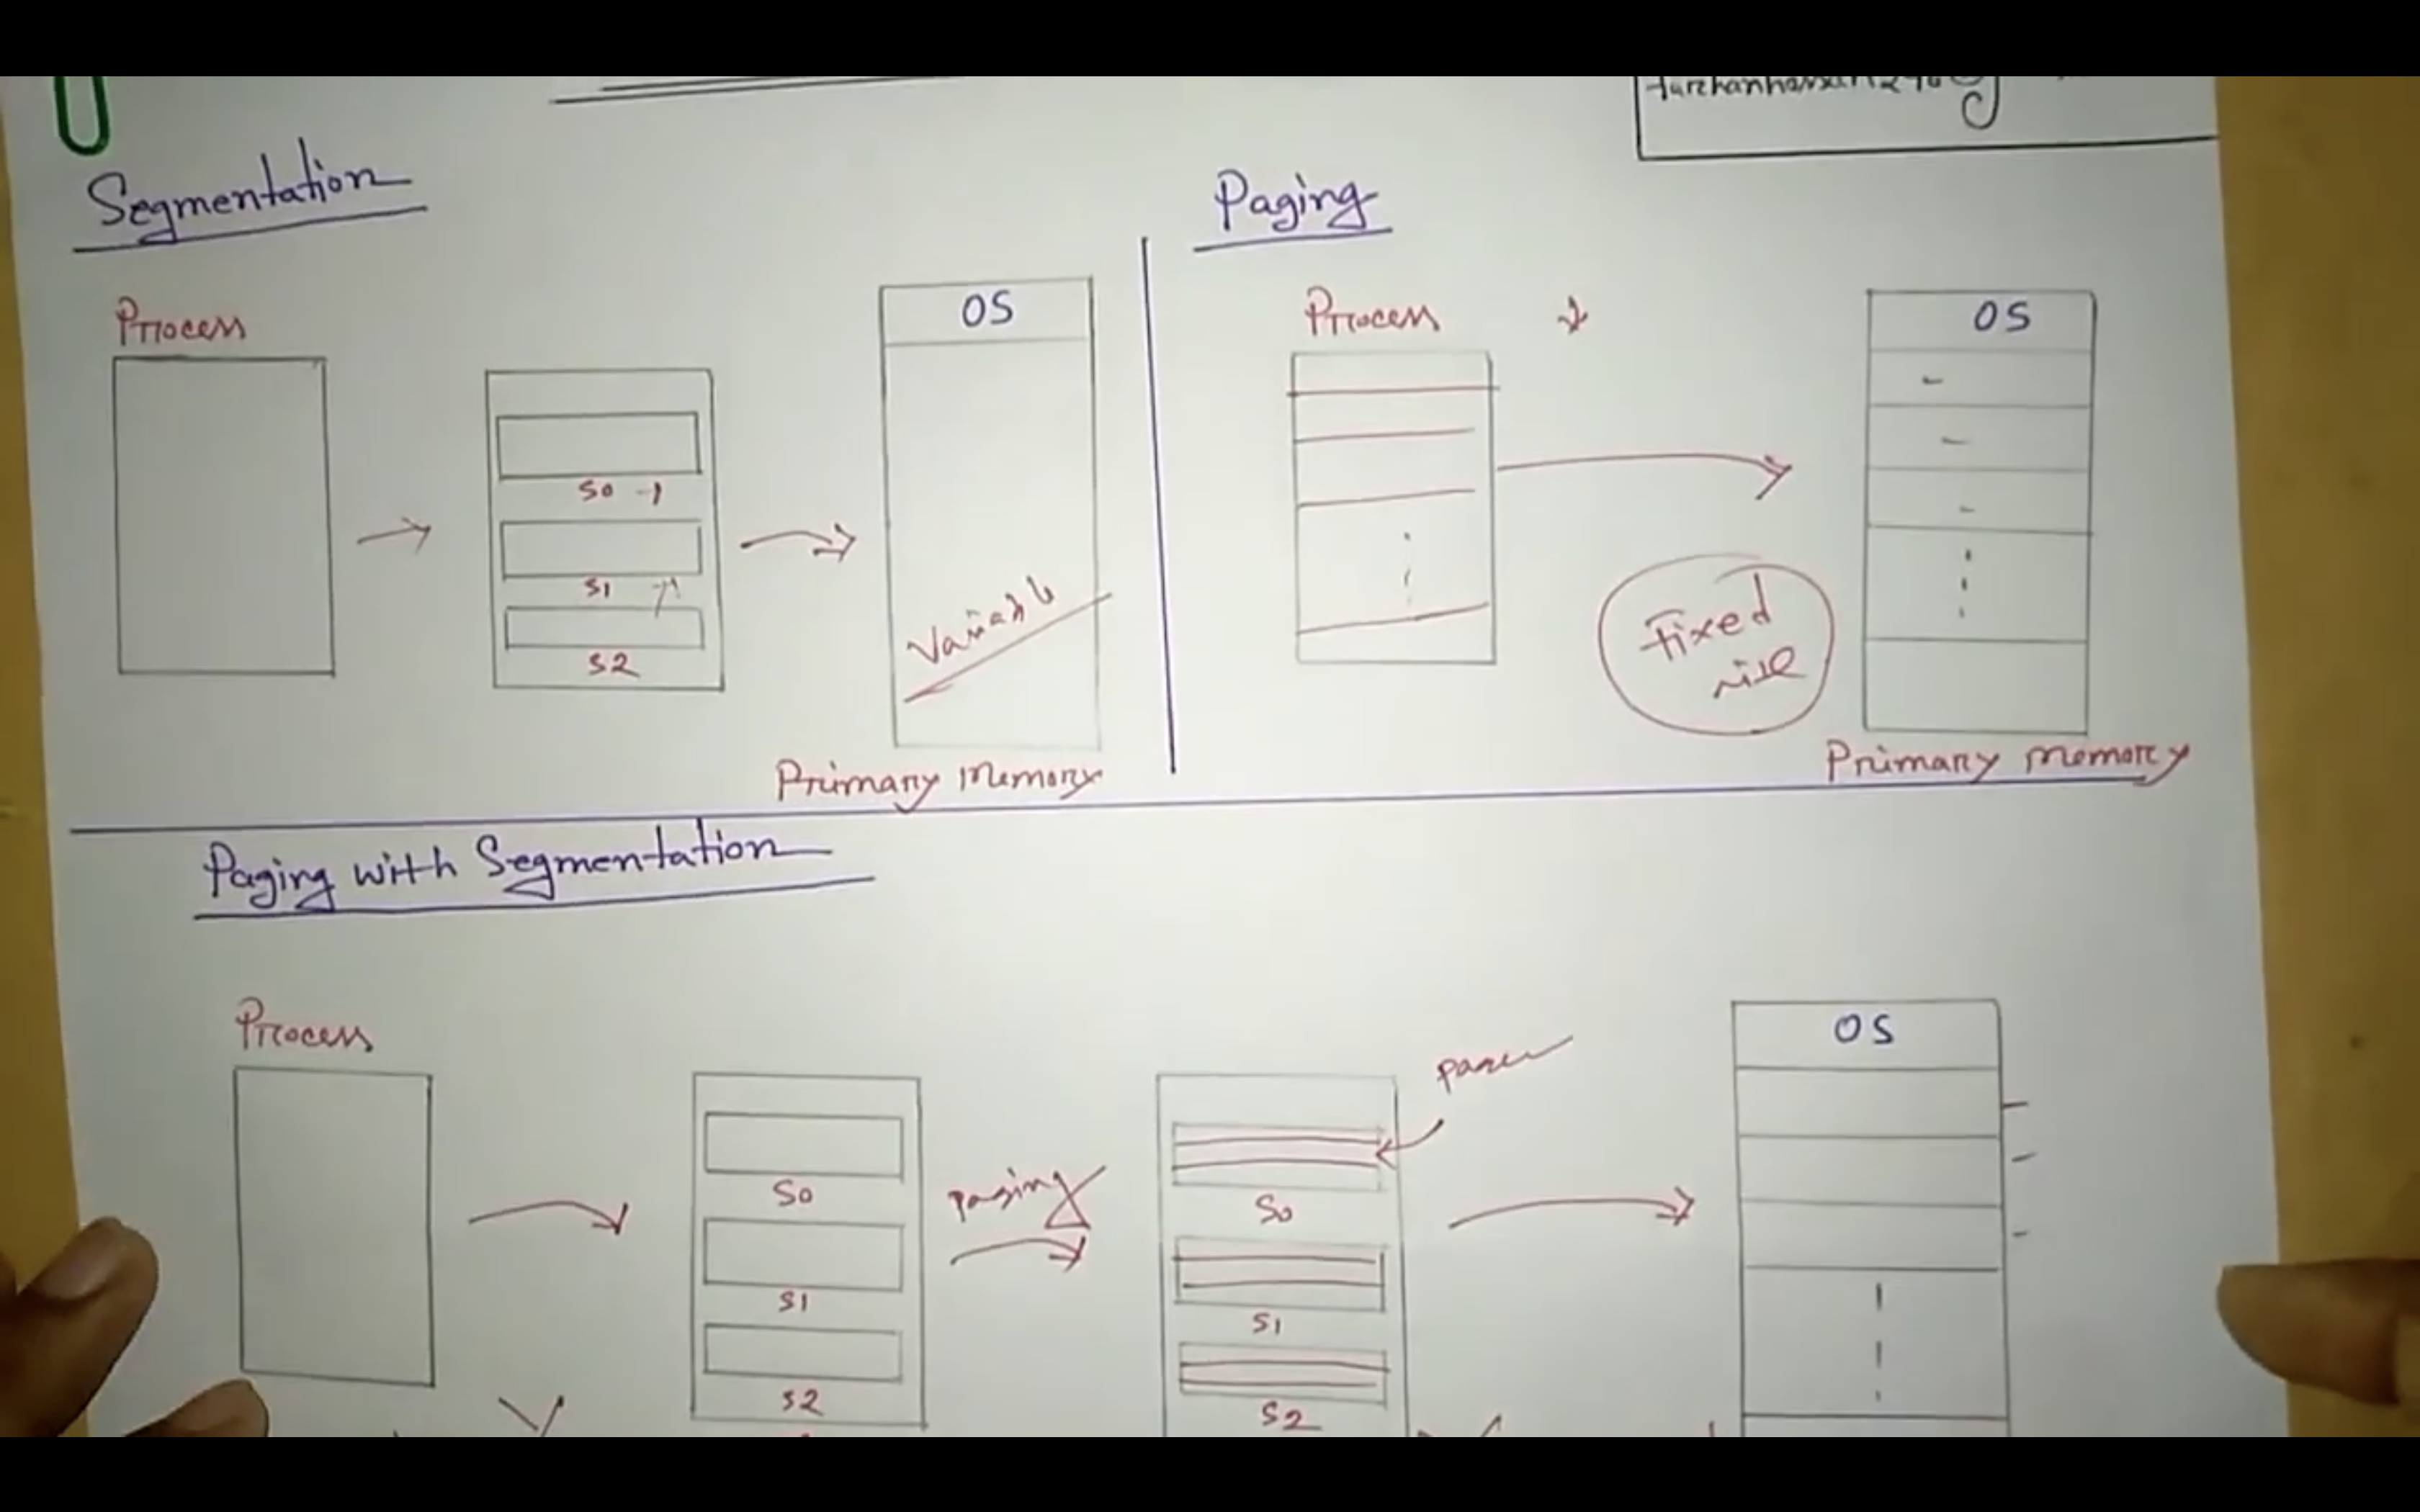 Segmentation
Process
So
S1
S2
OS
Variable
Primary Memory
Paging
Process
OS
Fixed
size
Primary memory
Paging with Segmentation
Process
So
S1
S2
paging
pages
So
S1
S2
OS